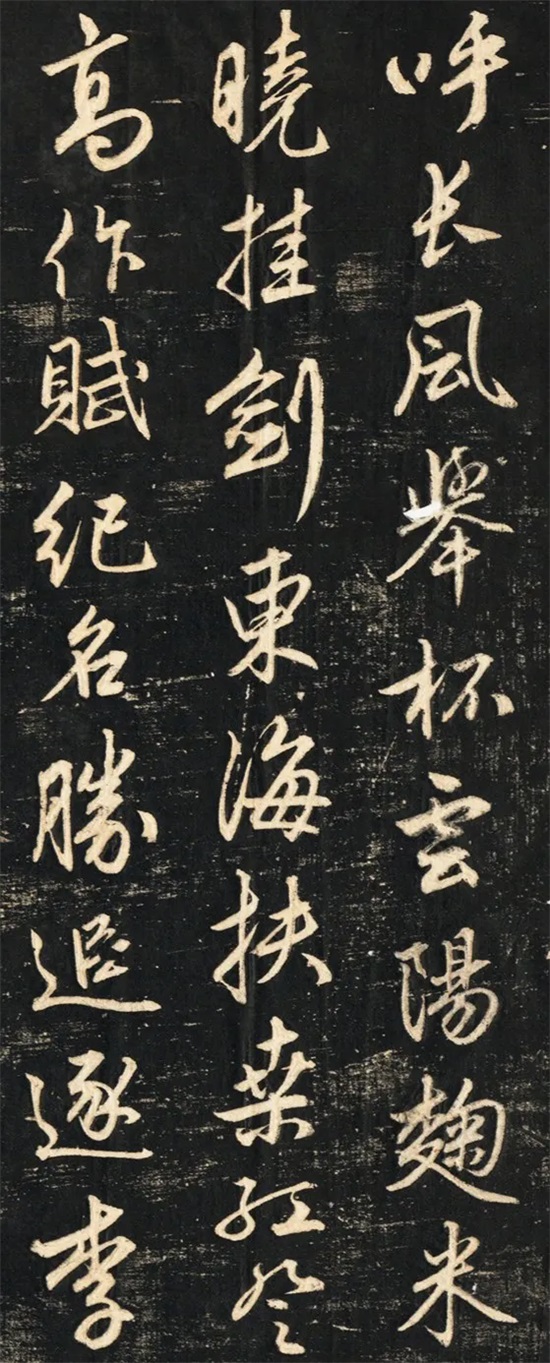 呼长風舉杯雲陽麴米
曉挂劍東海扶桑紅登
高作賦纪名勝追逐李